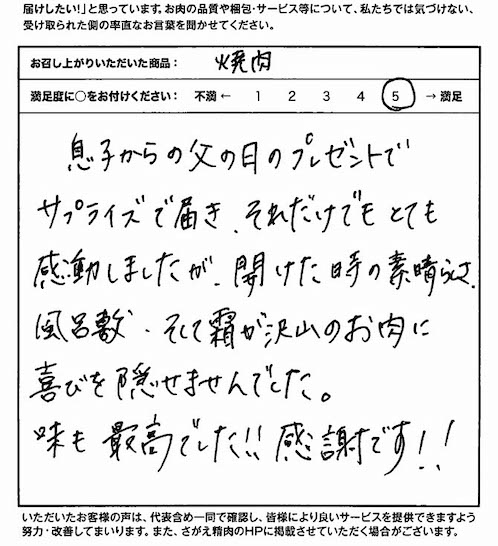 届けしたい!」と思っています。お肉の品質や梱包・サービス等について、私たちでは気づけない、
受け取られた側の率直なお言葉を聞かせてください。
お召し上がりいただいた商品: 焼肉
満足度に○をお付けください: 不満 ← 1 2 3 4 5 → 満足
息子からの父の日のプレゼントで
サプライズで届き、それだけでもとても
感動しましたが、開けた時の素晴らしさ、
風呂敷、そして霜が沢山のお肉に
喜びを隠せませんでした。
味も最高でした!! 感謝です!!
いただいたお客様の声は、代表含め一同で確認し、皆様により良いサービスを提供できますよう
努力・改善してまいります。また、さがえ精肉のHPに掲載させていただく場合がございます。